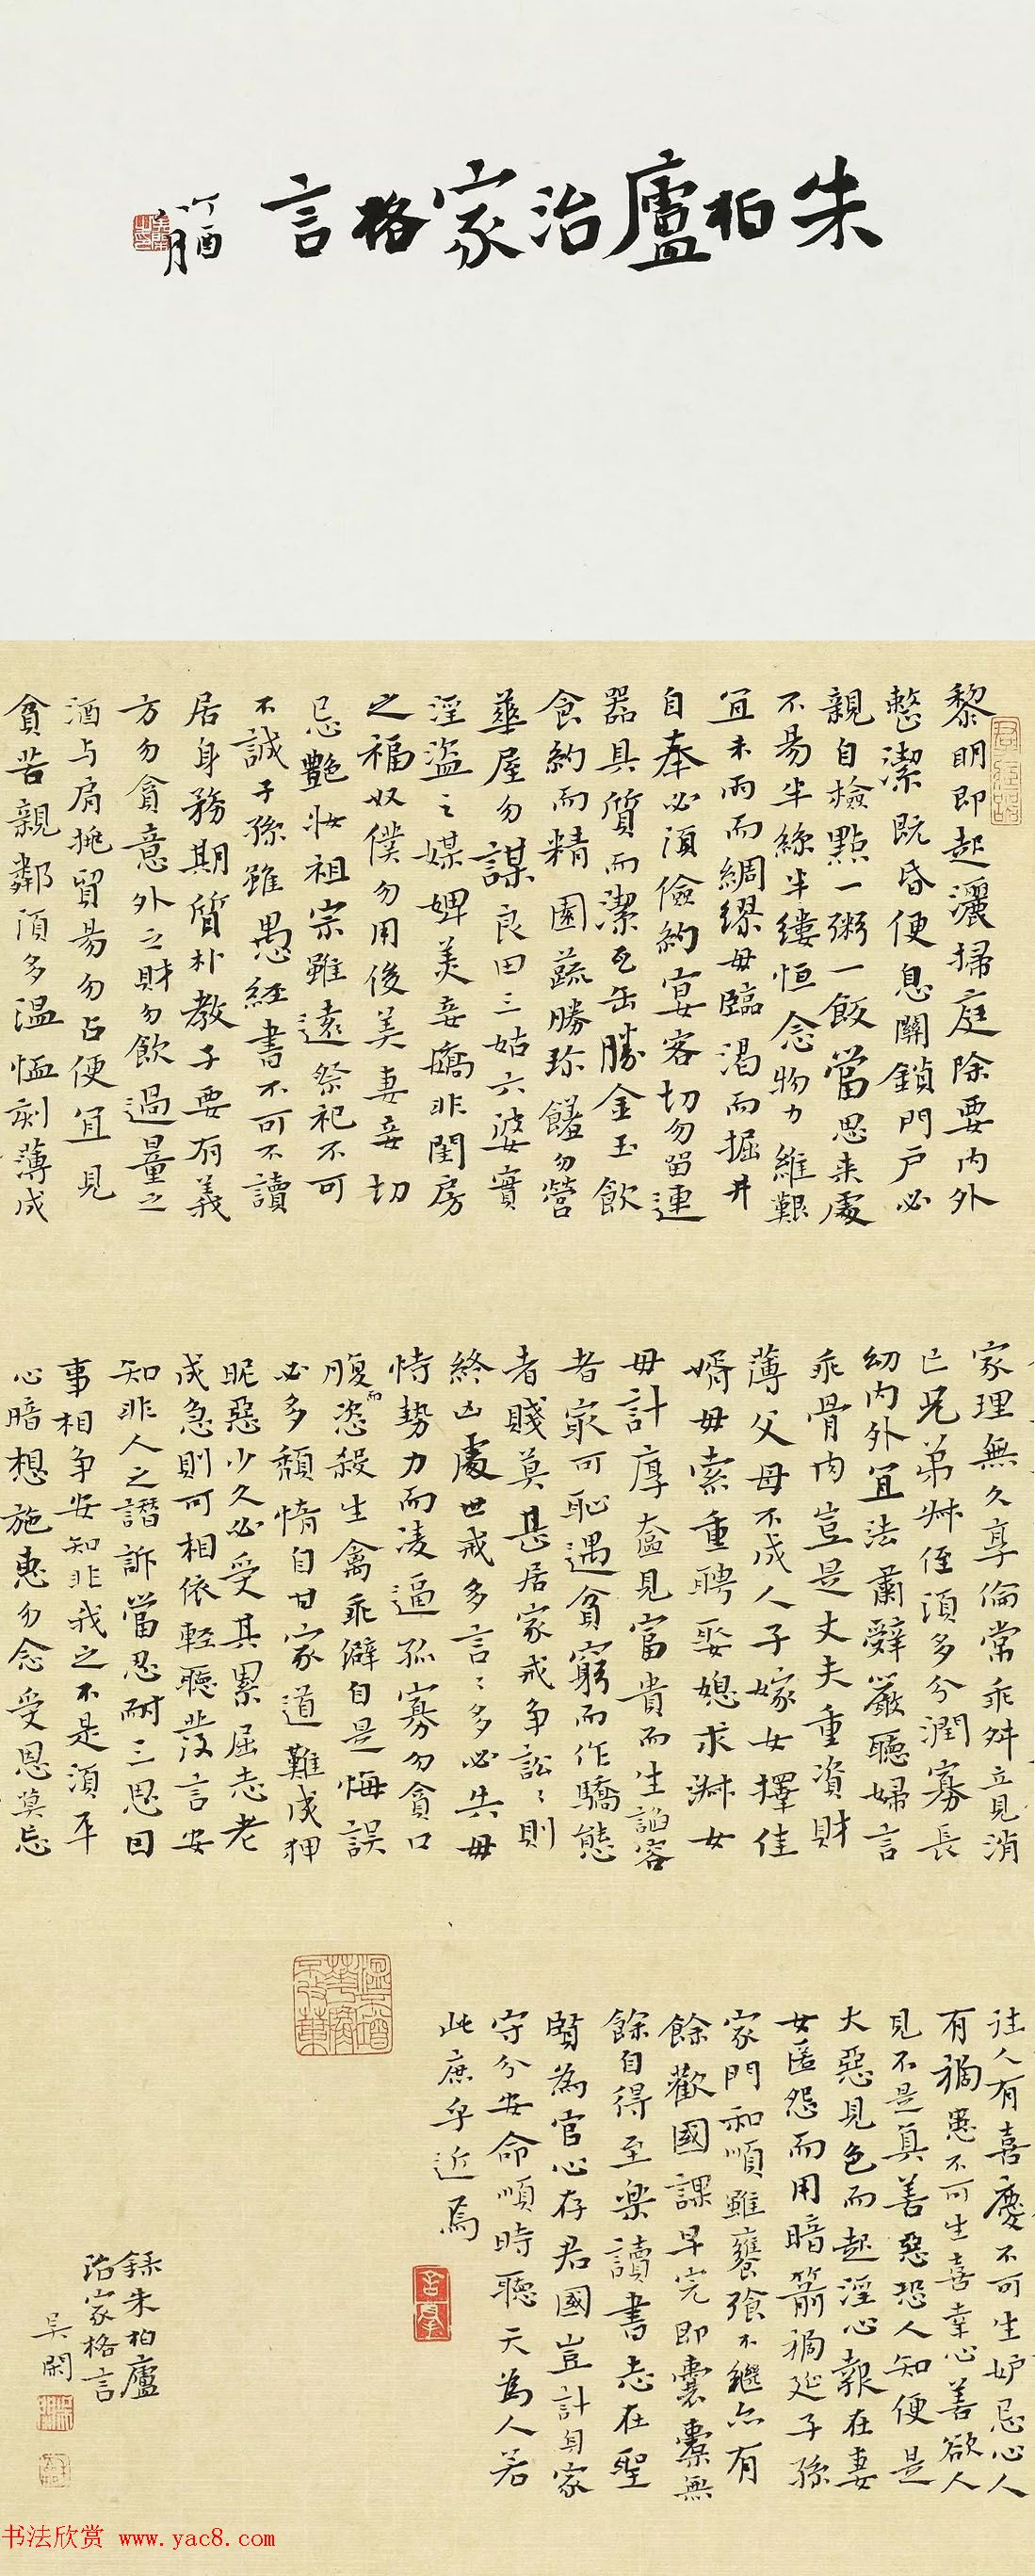 朱柏廬治家格言
丁酉
八月
黎明即起灑掃庭除要内外
整潔既昏便息關鎖門户必
親自檢點一粥一飯當思来處
不易半絲半縷恒念物力維艱
宜未雨而綢繆毋臨渴而掘井
自奉必須儉約宴客切勿留連
器具質而潔瓦缶勝金玉飲
食約而精園蔬勝珍饈勿營
華屋勿謀良田三姑六婆實
淫盜之媒婢美妾嬌非閨房
之福奴僕勿用俊美妻妾切
忌艷妝祖宗雖遠祭祀不可
不誠子孫雖愚經書不可不讀
居身務期質朴教子要有義
方勿貪意外之財勿飲過量之
酒与肩挑貿易勿占便宜見
貧苦親鄰須多温恤刻薄成
家理無久享倫常乖舛立見消
亡兄弟叔侄須多分潤寡長
幼内外宜法肅辭嚴聽婦言
乖骨肉豈是丈夫重資財
薄父母不成人子嫁女擇佳
婿毋索重聘娶媳求淑女
毋計厚奩見富貴而生諂容
者最可恥遇貧窮而作驕態
者賤莫甚居家戒争訟〻則
終凶處世戒多言〻多必失毋
恃勢力而凌逼孤寡勿貪口
腹而恣殺生禽乖僻自是悔誤
必多頹惰自甘家道難成狎
昵惡少久必受其累屈志老
成急則可相依輕聽發言安
知非人之譖訴當忍耐三思因
事相争安知非我之不是須平
心暗想施惠勿念受恩莫忘
往人有喜慶不可生妒忌心人
有禍患不可生喜幸心善欲人
見不是真善惡恐人知便是
大惡見色而起淫心報在妻
女匿怨而用暗箭禍延子孫
家門和順雖饔飧不繼亦有
餘歡國課早完即囊橐無
餘自得至樂讀書志在聖
賢為官心存君國豈計身家
守分安命順時聽天為人若
此庶乎近焉
録朱柏廬
治家格言
吴閑
书法欣赏 www.yac8.com